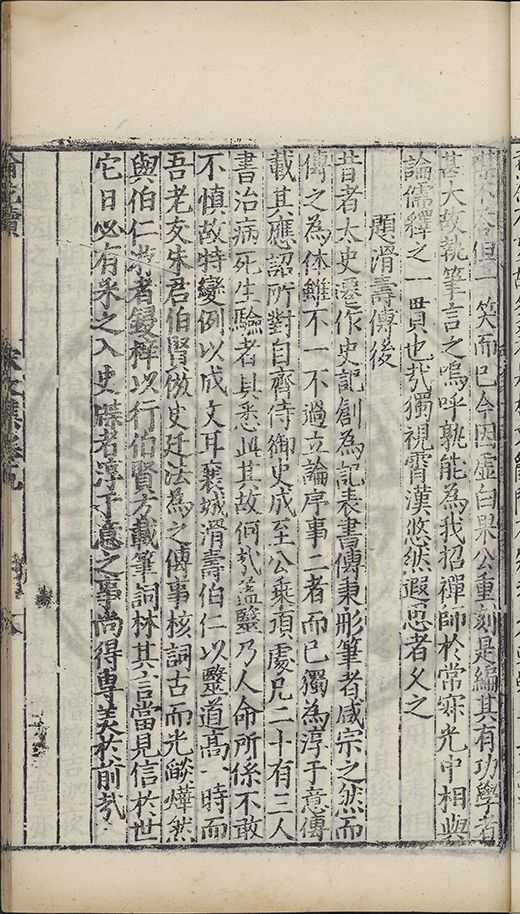 笑而已今因虛白杲公重刻是編其有功學者
甚大故執筆言之嗚呼孰能為我招禪師於常寂光中相與
論儒釋之一貫也哉獨視霄漢悠然遐思者久之
題滑壽傳後
昔者太史遷作史記創為記表書傳秉形筆者咸宗之然而
傳之為体雖不一不過立論序事二者而已獨為淳于意傳
載其應詔所對自齊侍御史成至公乘項處凡二十有三人
書治病死生驗者其悉此其故何哉盖毉乃人命所係不敢
不慎故特變例以成文耳襄城滑壽伯仁以毉道高一時而
吾老友朱君伯賢倣史迁法為之傳事核詞古而光燄燁然
與伯仁游者鋟梓以行伯賢方載筆詞林其言當見信於世
它日必有采之入史牒者淳于意之事尚得專美於前哉